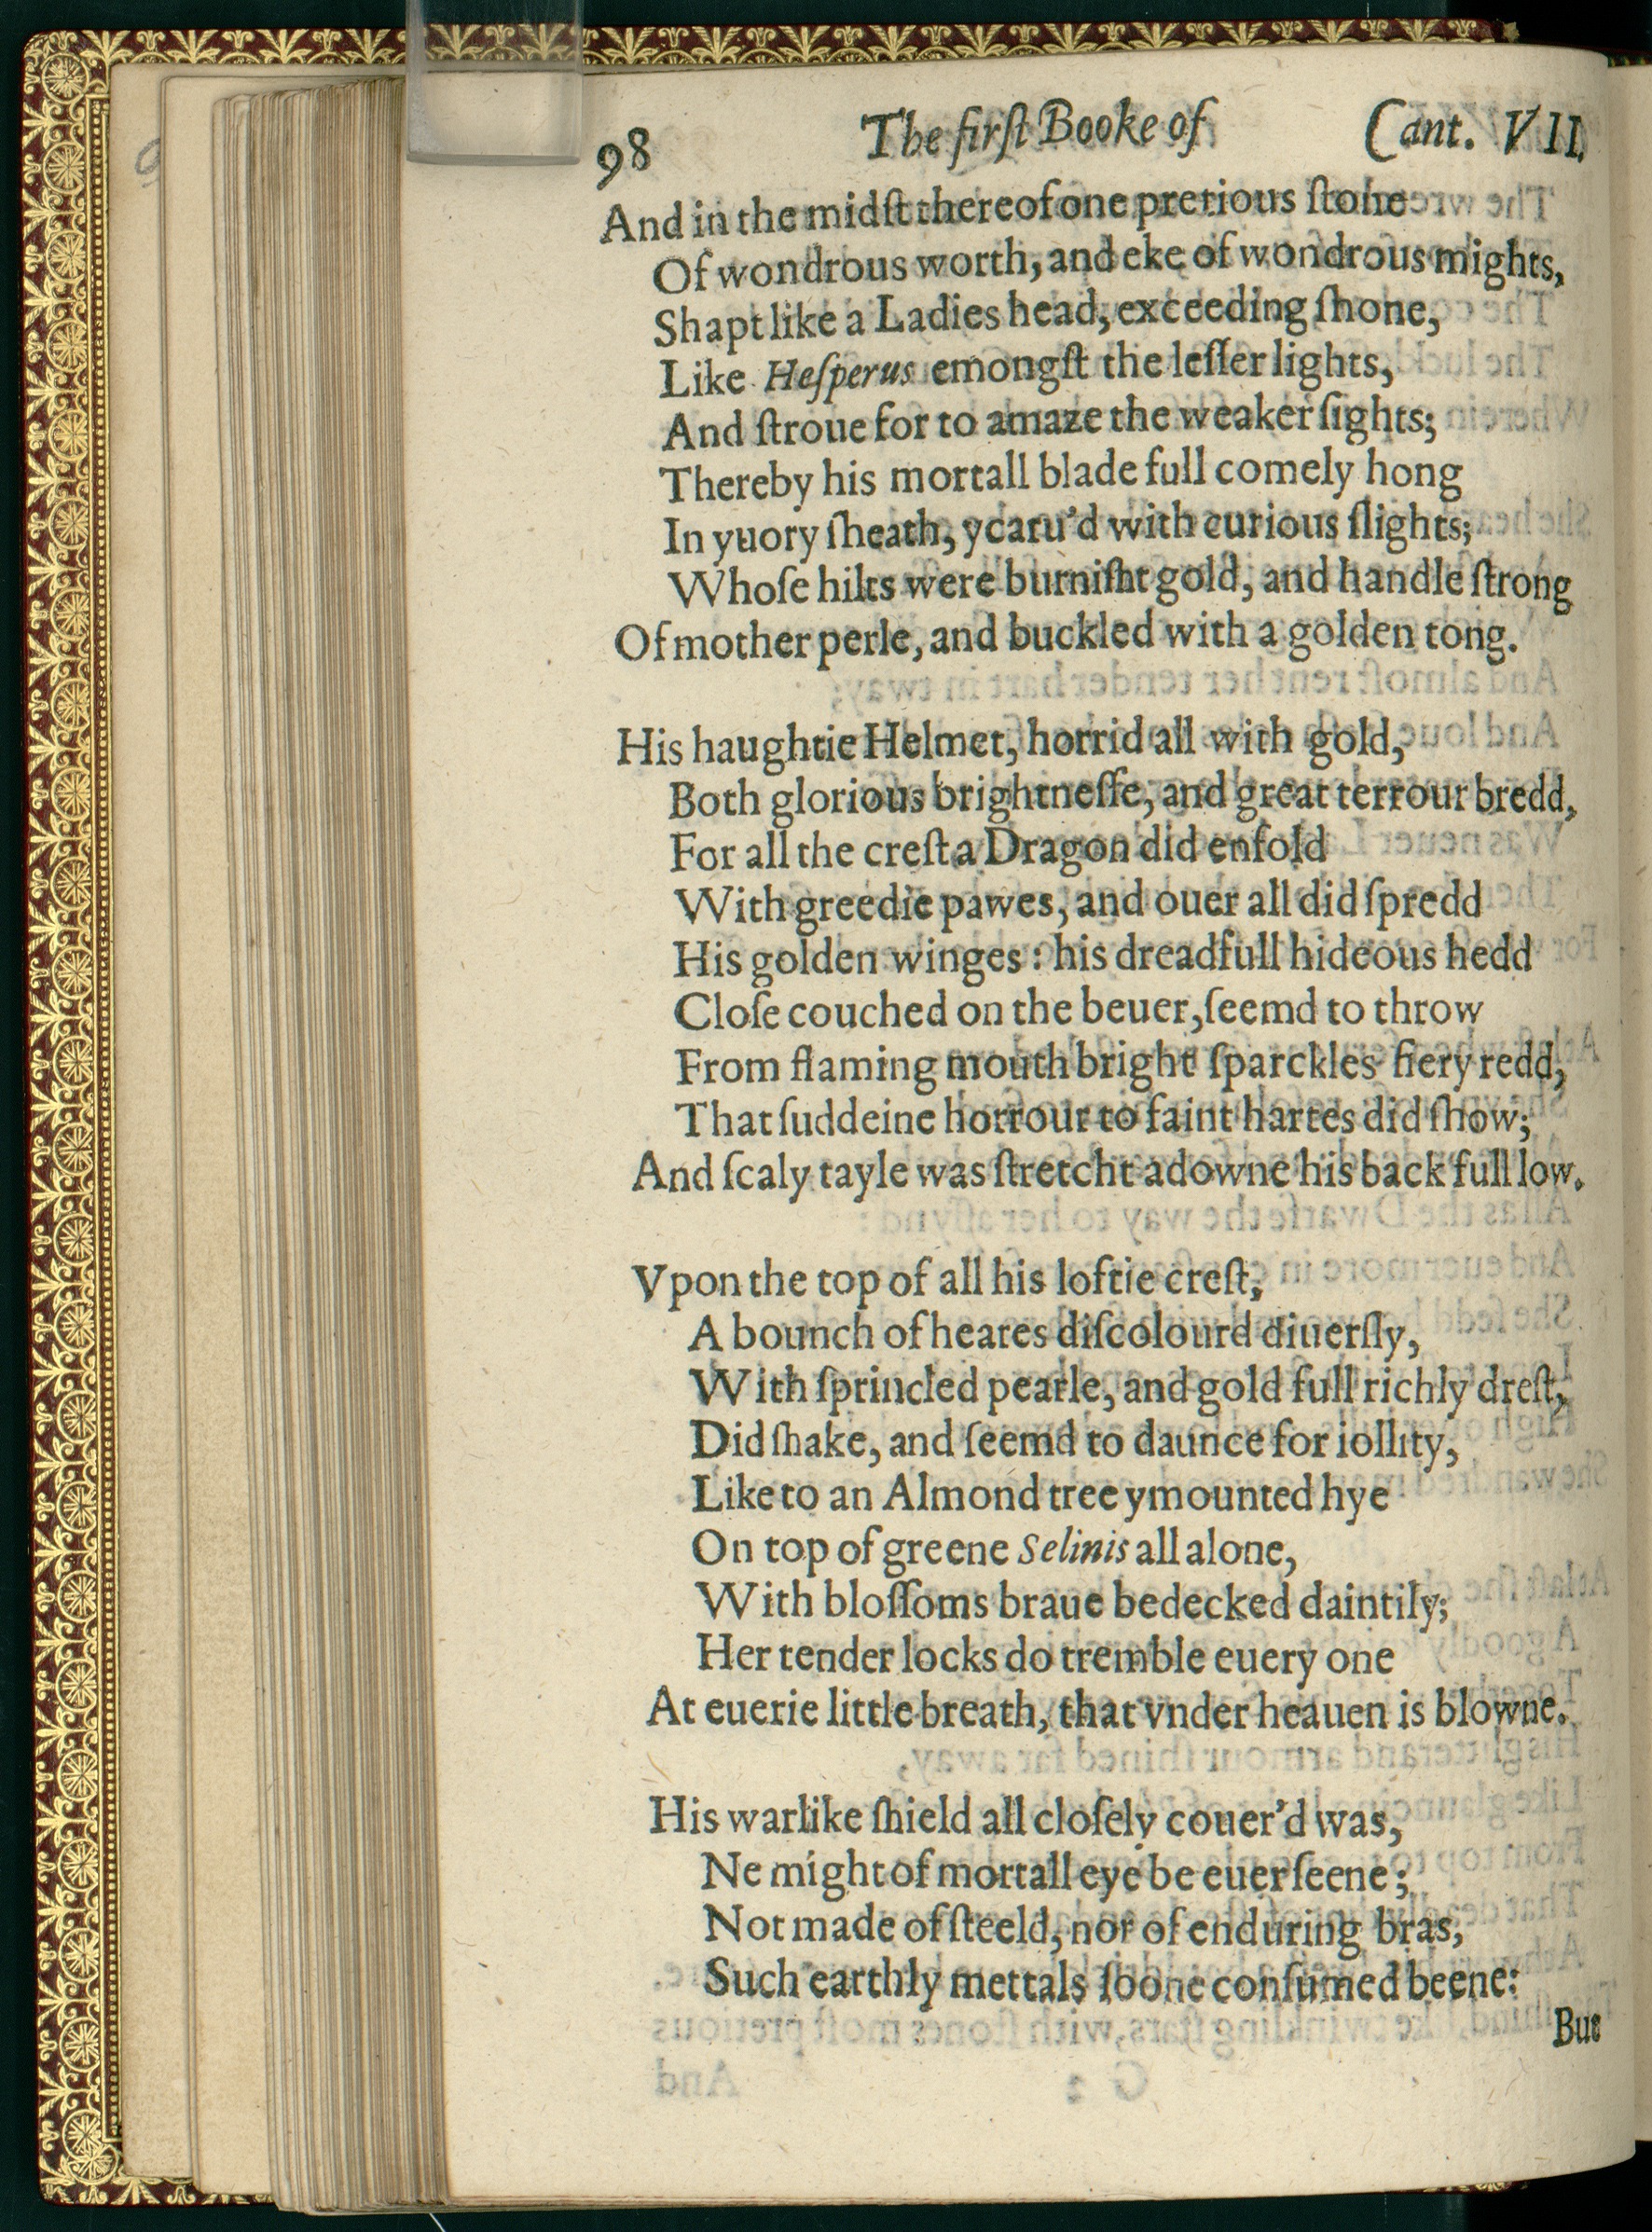 98 The firſt Booke of Cant. VII.
And in the midſt thereof one pretious ſtone
Of wondrous worth, and eke of wondrous mights,
Shapt like a Ladies head, exceeding ſhone,
Like Heſperus emongſt the leſſer lights,
And ſtroue for to amaze the weaker ſights;
Thereby his mortall blade full comely hong
In yuory ſheath, ycaru'd with curious ſlights;
Whoſe hilts were burniſht gold, and handle ſtrong
Of mother perle, and buckled with a golden tong.
His haughtie Helmet, horrid all with gold,
Both glorious brightneſſe, and great terrour bredd,
For all the creſt a Dragon did enfold
With greedie pawes, and ouer all did ſpredd
His golden winges: his dreadfull hideous hedd
Cloſe couched on the beuer, ſeemd to throw
From flaming mouth bright ſparckles fiery redd,
That ſuddeine horrour to faint hartes did ſhow;
And ſcaly tayle was ſtretcht adowne his back full low.
Vpon the top of all his loftie creſt,
A bounch of heares diſcolourd diuerſly,
With ſprincled pearle, and gold full richly dreſt,
Did ſhake, and ſeemd to daunce for iollity,
Like to an Almond tree ymounted hye
On top of greene Selinis all alone,
With bloſſoms braue bedecked daintily;
Her tender locks do tremble euery one
At euerie little breath, that vnder heauen is blowne.
His warlike ſhield all cloſely couer'd was,
Ne might of mortall eye be euer ſeene;
Not made of ſteeld, nor of enduring bras,
Such earthly mettals ſoone conſumed beene:
But